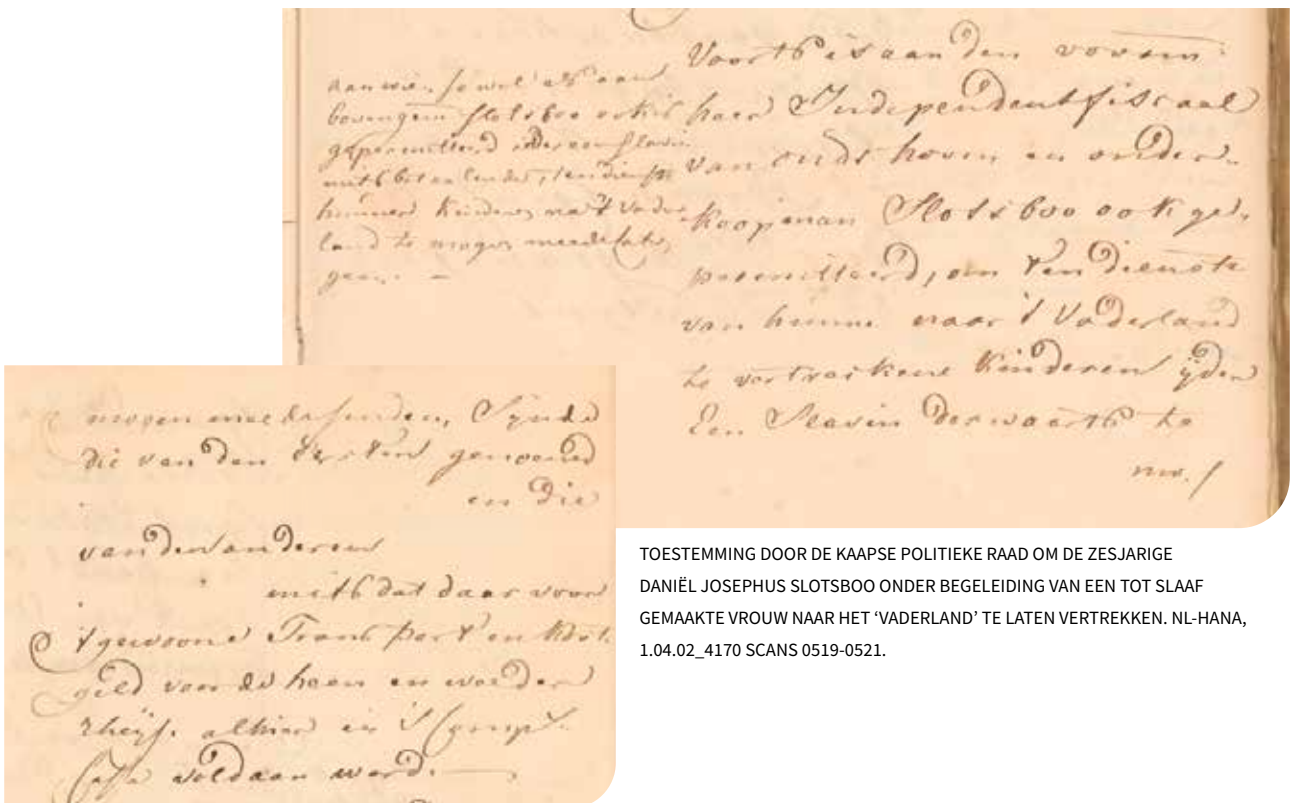 aan wien, so wel als aan
bovengem: Slotsboo ook is
gepermitteerd ider een slavin
mits betalende, ten dienste
hunner kinderen na 't vader
land te mogen meede laten
gaan. —
Voorts is aan den voorm:
heer Independent fiscaal
van oudshoorn en onder-
koopman Slotsboo ook ge-
permitteerd, om ten dienste
van hunne naar 't Vaderland
te vertreckene kinderen ijder
Een Slavin derwaarts te
mo:/
mogen meede senden, Synde
die van den Eersten genoemd
en die
van den anderen
mits dat daar voor
't gewoone Transport en kost
geld van de heen en weeder
rheijs. alhier in 's Comp:s
Cassa voldaan werd. —
TOESTEMMING DOOR DE KAAPSE POLITIEKE RAAD OM DE ZESJARIGE
DANIËL JOSEPHUS SLOTSBOO ONDER BEGELEIDING VAN EEN TOT SLAAF
GEMAAKTE VROUW NAAR HET ‘VADERLAND’ TE LATEN VERTREKKEN. NL-HANA,
1.04.02_4170 SCANS 0519-0521.